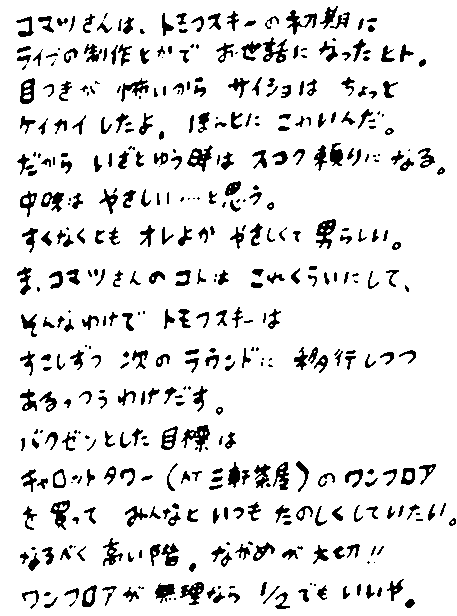 コマツさんは、トモフスキーの初期に
ライブの制作とかで お世話になったヒト。
目つきが 怖いから サイショは ちょっと
ケイカイしたよ。ほーとに こわいんだ。
だから いざとゆう時は スゴク頼りになる。
中味は やさしい…と思う。
すくなくとも オレよか やさしくて 男らしい。
ま、コマツさんのコトは これくらいにして、
そんなわけで トモフスキーは
すこしずつ 次の ラウンドに 移行しつつ
あるっつうわけだす。
バクゼンとした目標は
キャロットタワー(AT 三軒茶屋)のワンフロア
を買って みんなと いつも たのしくしていたい。
なるべく 高い階。ながめが大切!!
ワンフロアが無理なら 1/2でもいいや。